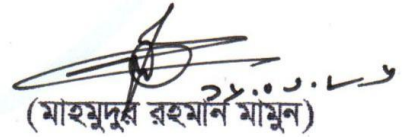 (মাহমুদুর রহমান মামুন)